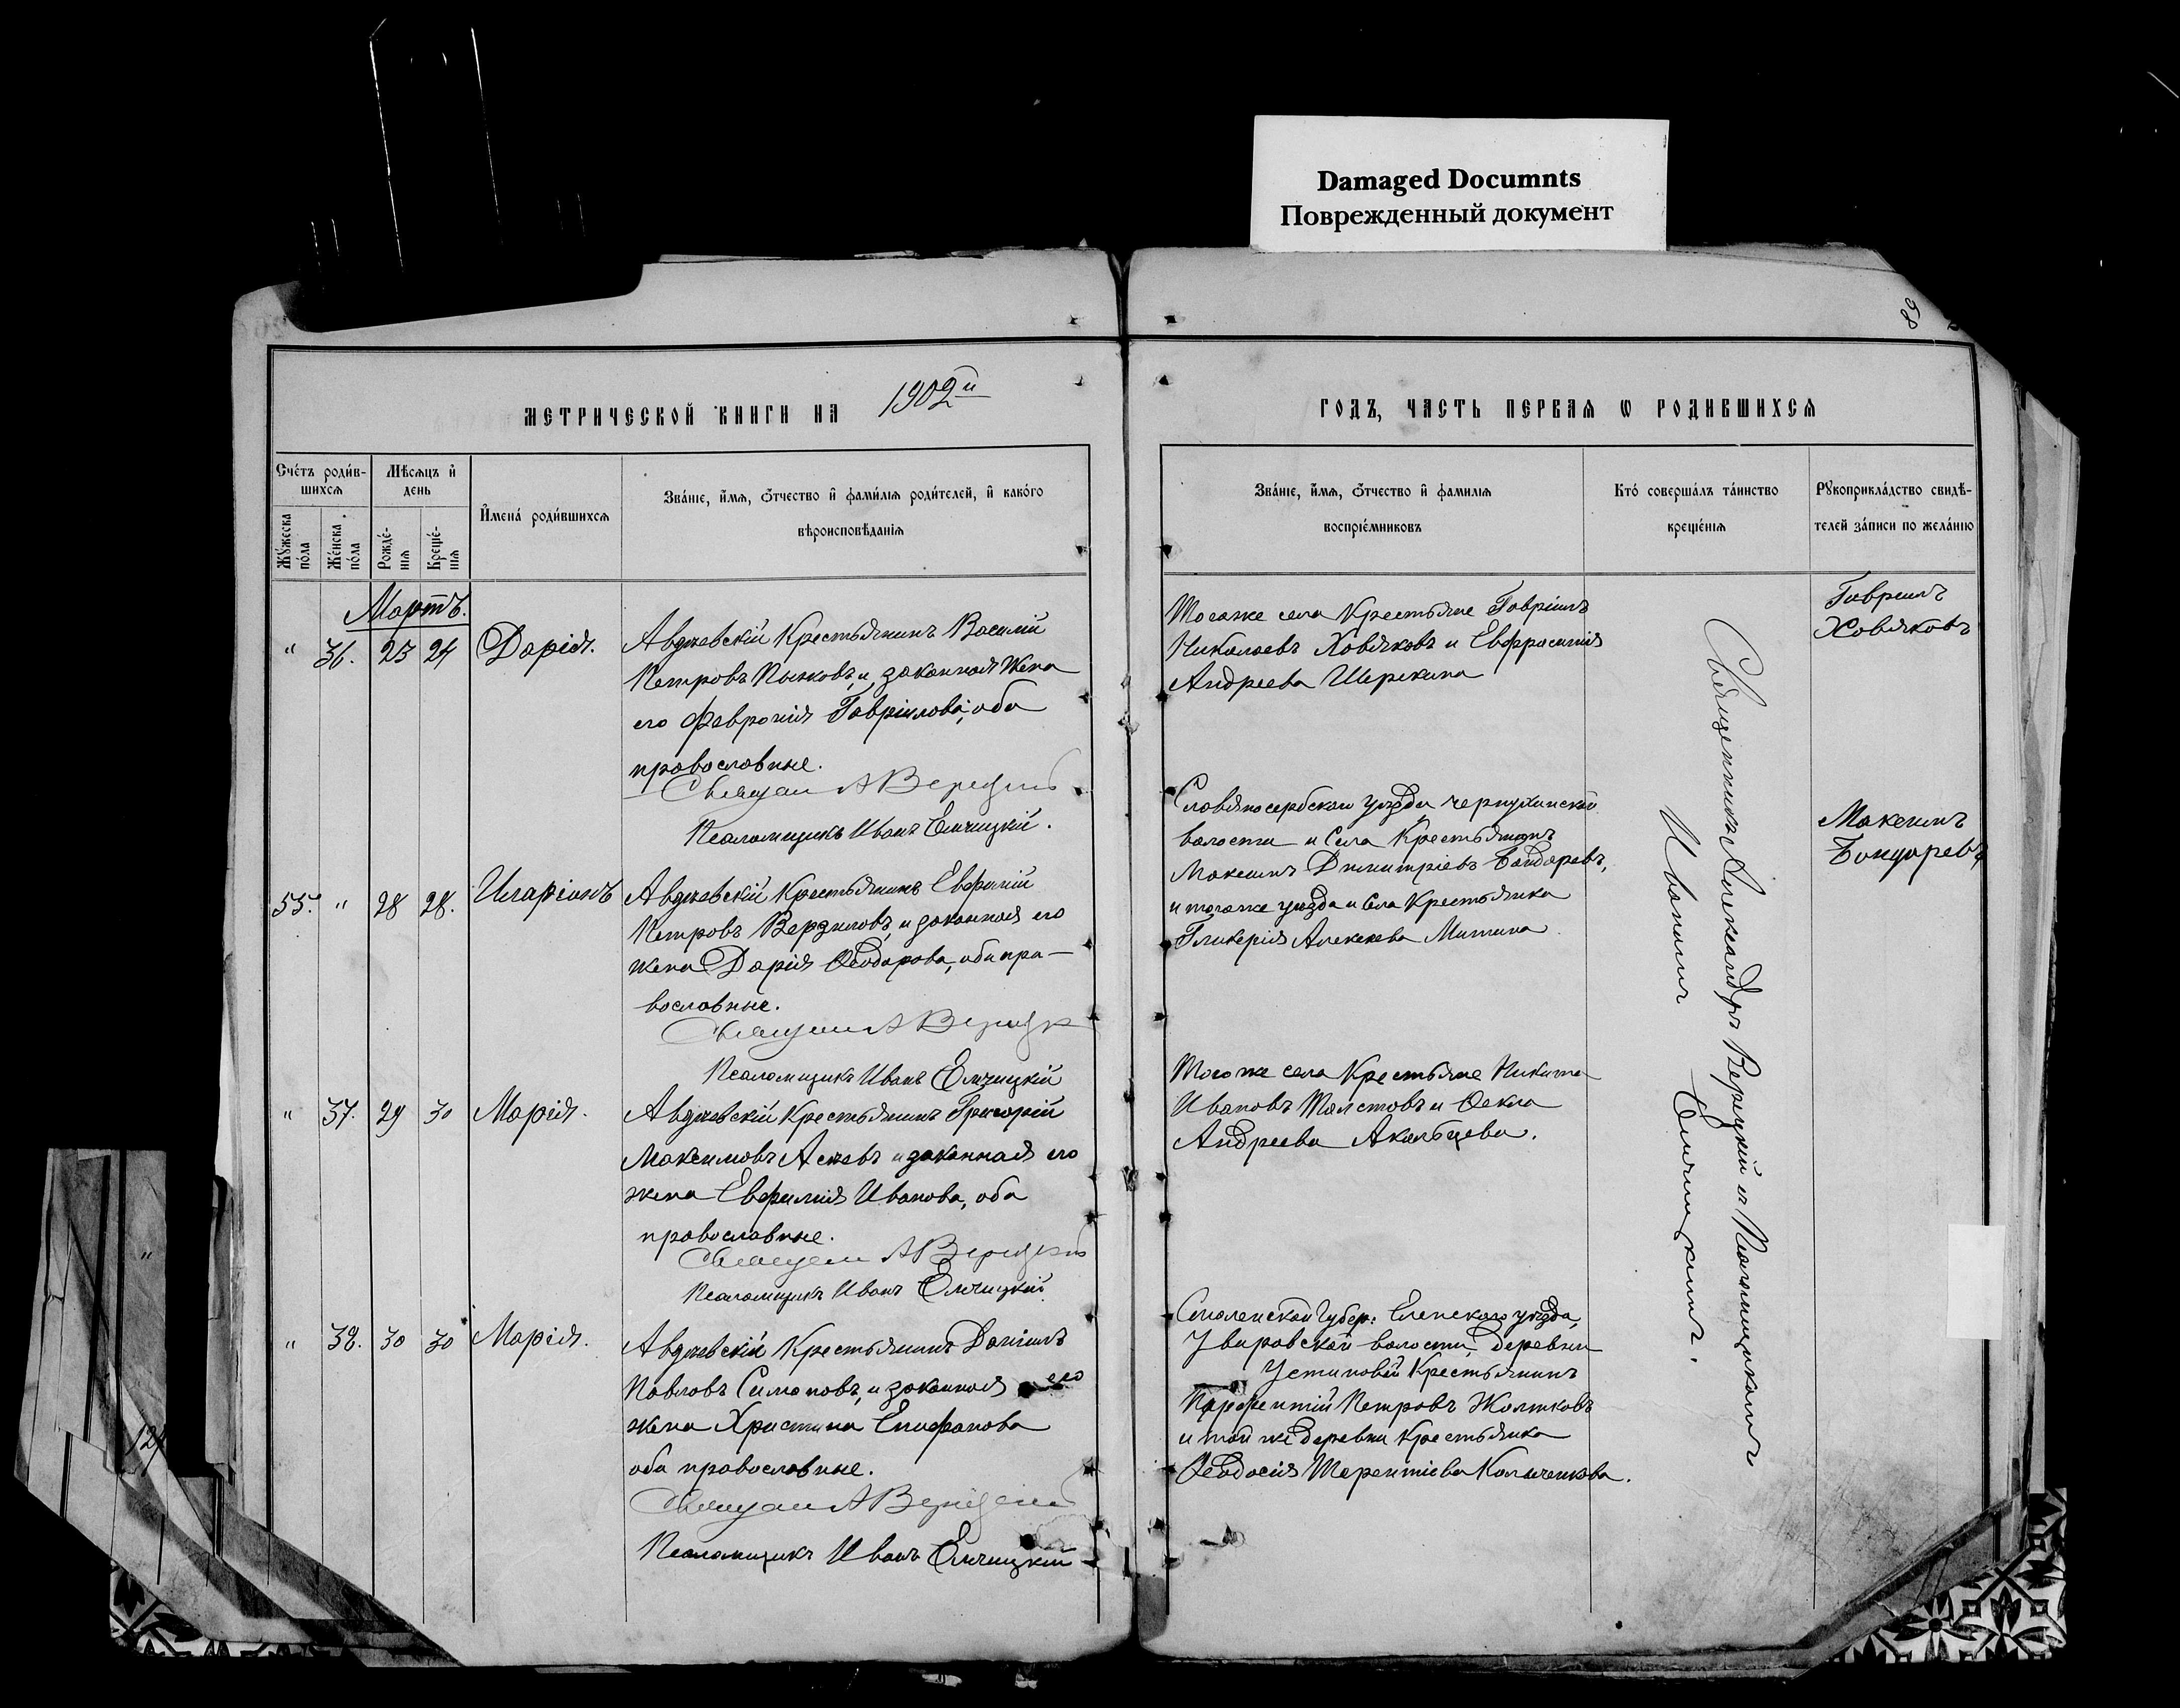 Damaged Documnts
Поврежденный документ
58
МЕТРИЧЕСКОЙ КНИГИ НА 1902й
ГОДЪ, ЧАСТЬ ПЕРВАѦ Ѡ РОДИВШИХСѦ
Счетъ родив-
шихсѧ
Мѣсѧцъ и
день
Мужеска
пола
Женска
пола
Рожде-
нїѧ
Креще-
нїѧ
Имена родившихсѧ
Званїе, имѧ, ѿчество и фамилїѧ родителей, и какого
вѣроисповѣданїѧ
Званїе, имѧ, ѿчество и фамилїѧ
воспрїемниковъ
Кто совершалъ таинство
крещенїѧ
Рукоприкладство свидѣ-
телей записи по желанїю
Мартъ.
" 36. 23 24 Дарія.
Авдѣевскій Крестьянинъ Василій
Петровъ и законная жена
его Феврония Гавріилова, оба
православные.
Священ А Верецкій
Псаломщикъ Иванъ Елчицкій.
Тогоже села Крестьяне Гавріилъ
Николаевъ Ховяковъ и Евфросинія
Андреева Шерекина
Гавриилъ
Ховяковъ
55. " 28 28. Иларіонъ
Авдѣевскій Крестьянинъ Евфимій
Петровъ Верзиловъ, и законная его
жена Дарія Ѳеодорова, оба пра-
вославные.
Священ А Верецк
Псаломщикъ Иванъ Елчицкій
Славяносербскаго уѣзда Чернухинской
волости и Села Крестьянинъ
Максимъ Димитріевъ Бондаревъ,
и тогоже уѣзда и Села Крестьянка
Гликерія Алексеева Митина
Максимъ
Бондаревъ
" 37. 29 30 Марія.
Авдѣевскій Крестьянинъ Григорій
Максимовъ и законная его
жена Евфимия Иванова, оба
православные.
Священ А Верецкій
Псаломщикъ Иванъ Елчицкій
Тогоже села Крестьяне Никита
Ивановъ Толстовъ и Ѳекла
Андреева Акальцева.
" 38. 30 30 Марія.
Авдѣевскій Крестьянинъ Даніилъ
Павловъ Симоновъ, и законная его
жена Христина Епифанова
оба православные.
Священ А Верецкій
Псаломщикъ Иванъ Елчицкій
Смоленской Губер: Еленского уѣзда,
Уваровской волости, деревни
Устиновой Крестьянинъ
Парфентій Петровъ Жолтковъ
и той же деревни Крестьянка
Ѳеодосія Терентіева
Священникъ Александръ Верецкій съ Псаломщикомъ
Иваномъ Елчицкимъ.
124